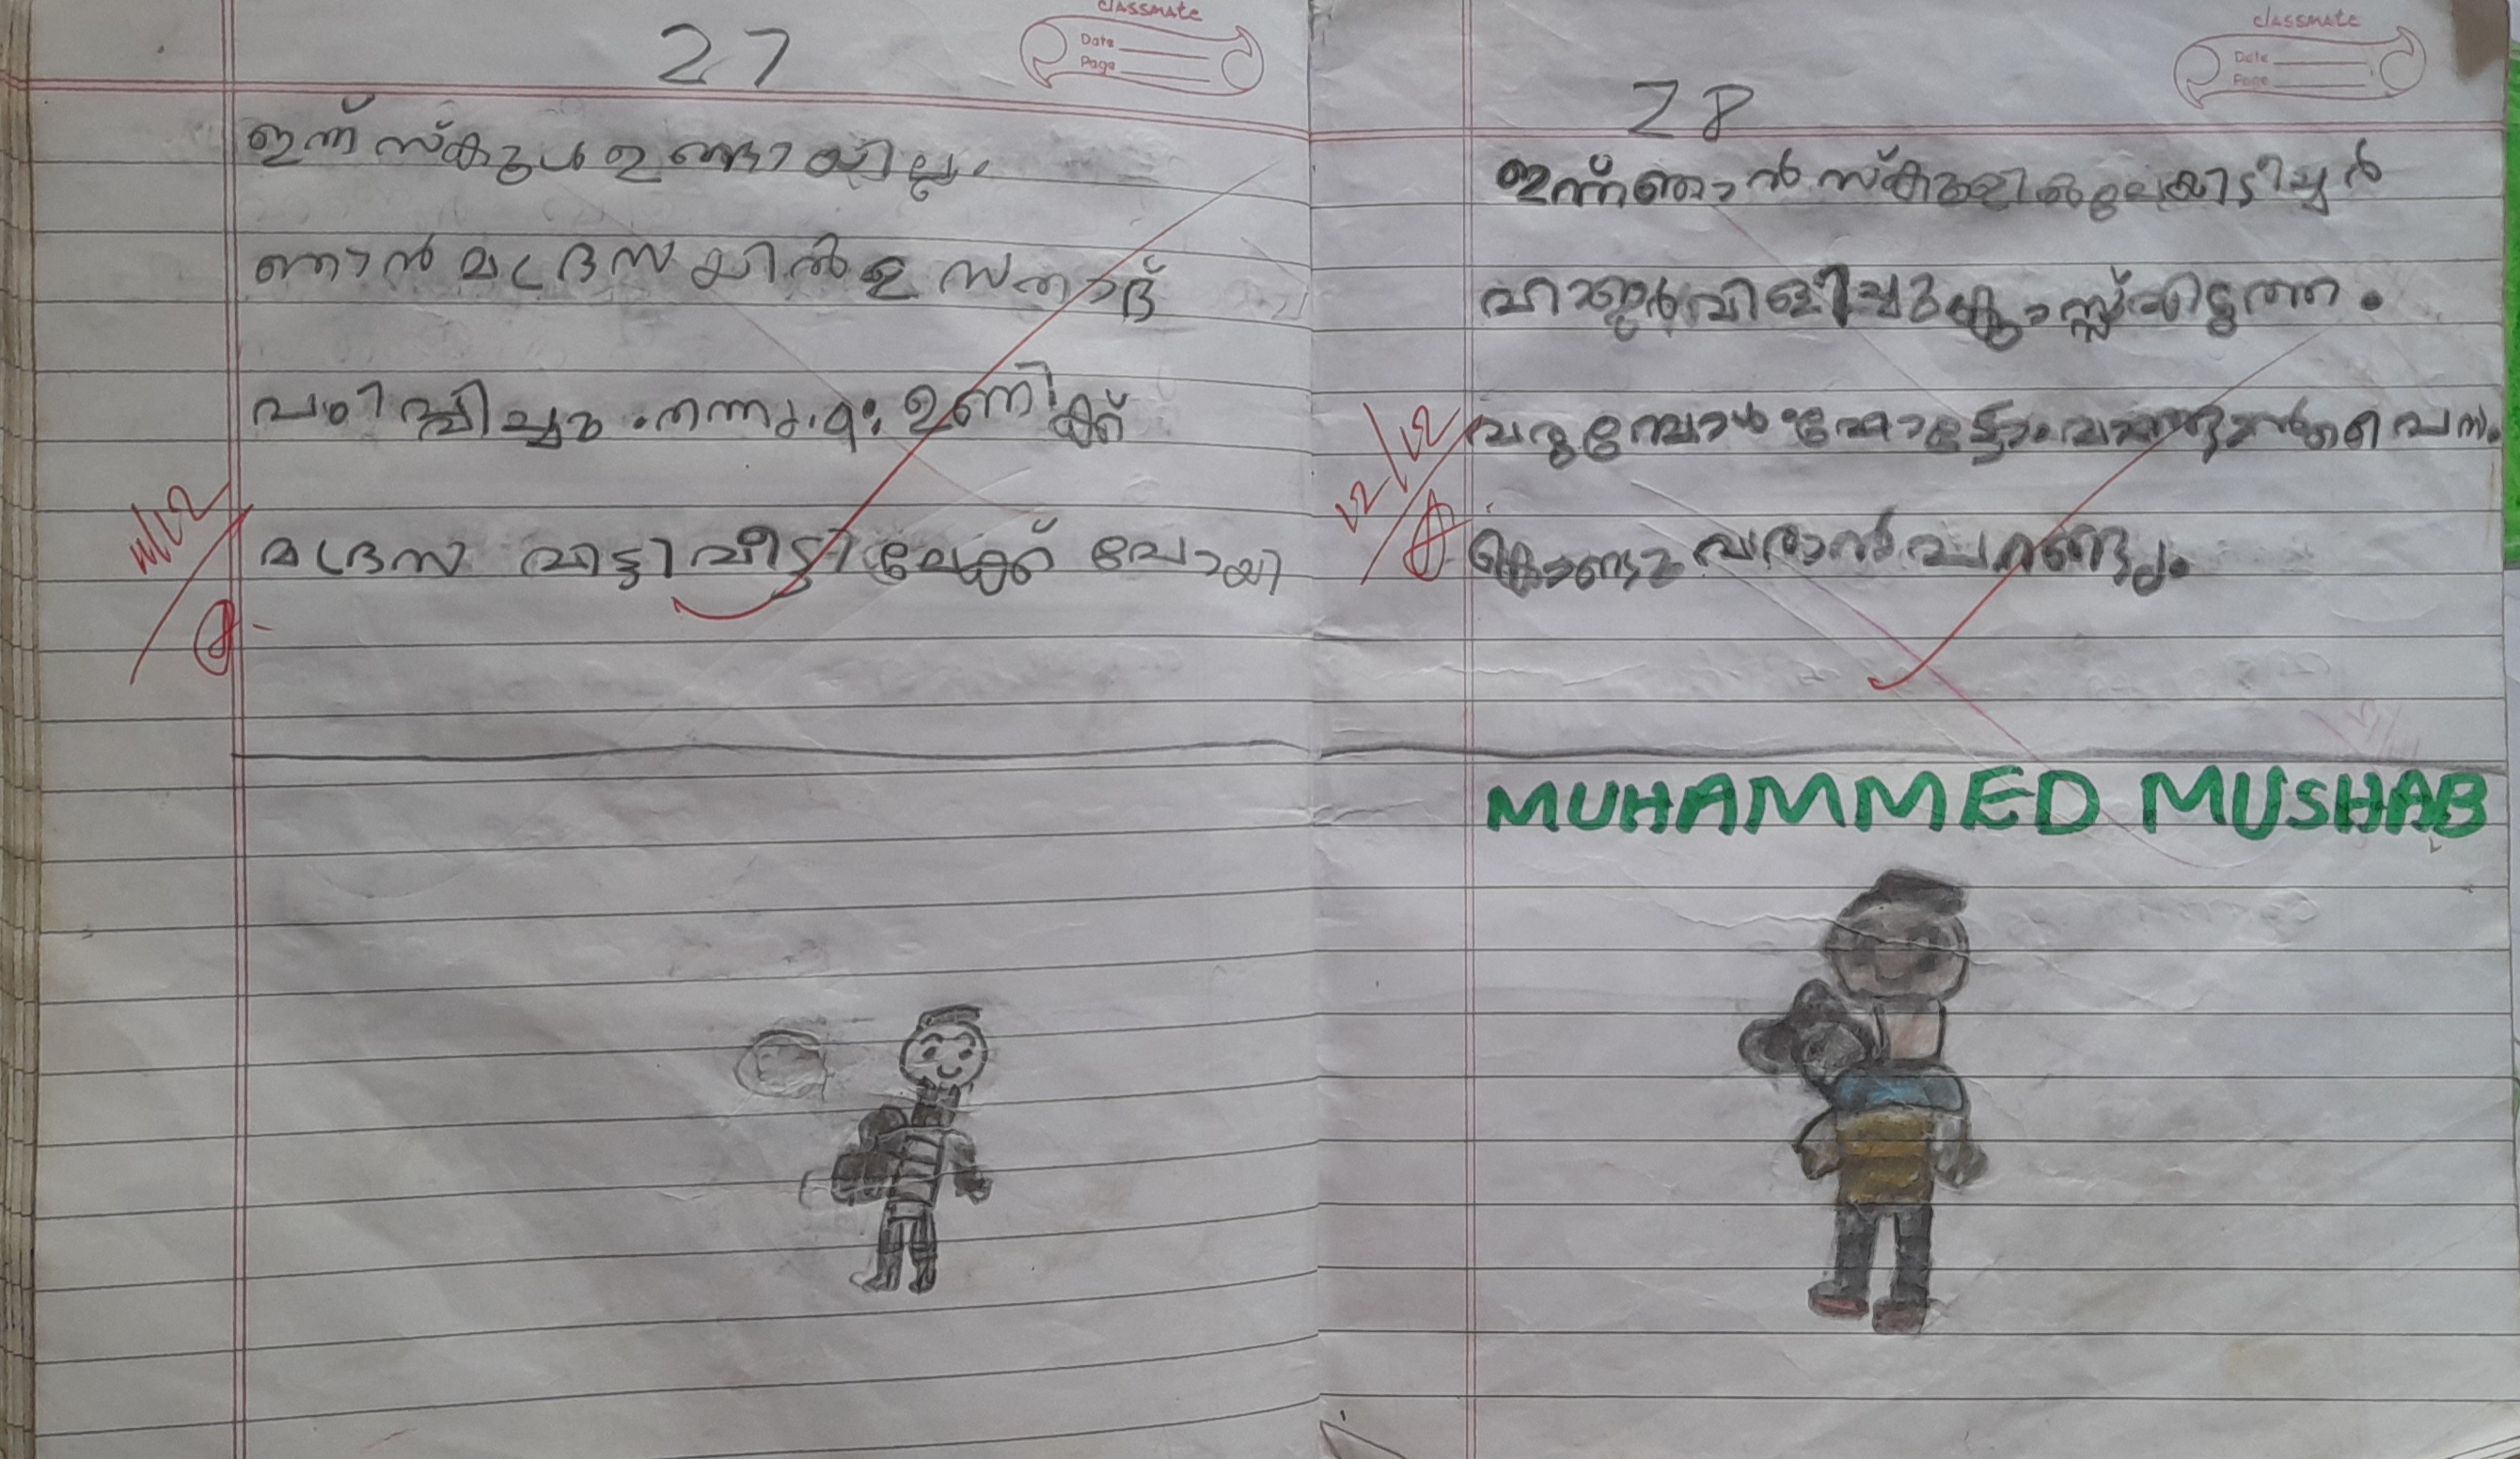 classmate
Date
Page
27
ഇന്ന് സ്കൂൾ ഉണ്ടായില്ല.
ഞാൻ മദ്രസയിൽ ഉസതാദ്
പഠിപ്പിച്ചു തന്നു. 9: ഉണിക്ക്
മദ്രസ വിട്ടി വീട്ടിലേക്ക് പോയി
11/12
classmate
Date
Page
28
ഇന്ന് ഞാൻ സ്കൂളിൽ ടീച്ചർ
വിളിച്ചു ക്ലാസ്സ്
വരുമ്പോൾ ഫോട്ടോ
കൊണ്ടു വരാൻ പറഞ്ഞു.
12/12
MUHAMMED MUSHAB